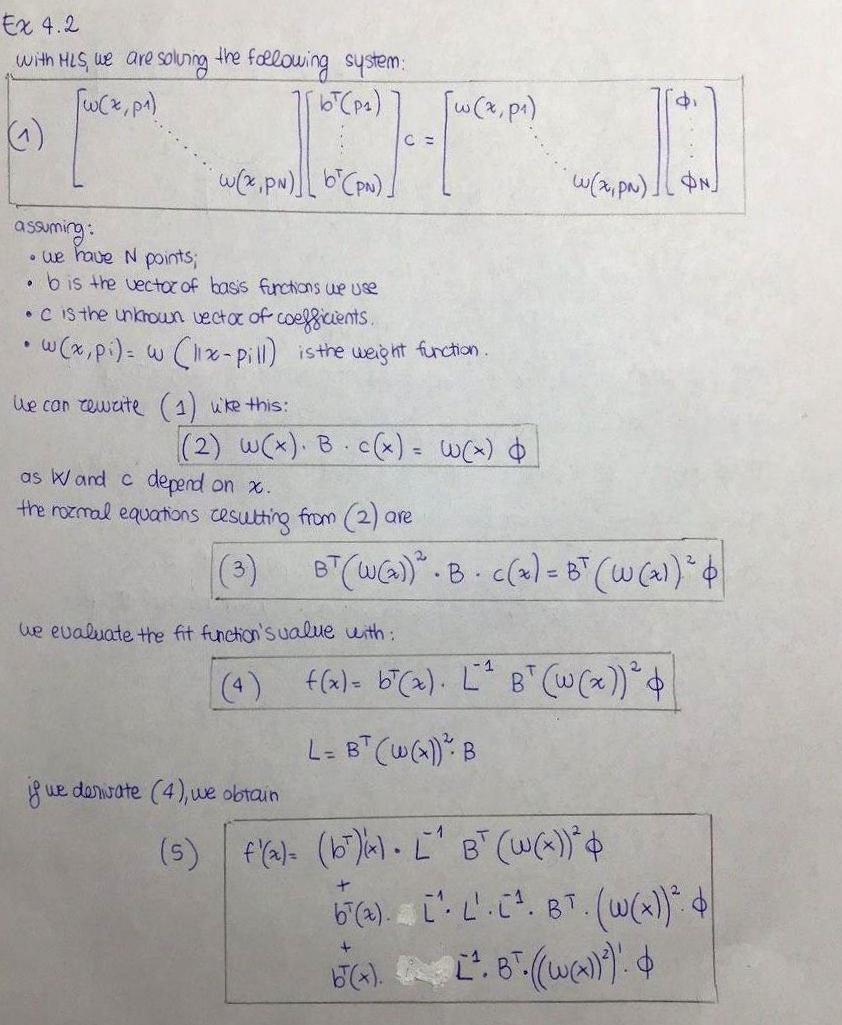 Ex 4.2
with MLS, we are solving the following system:
(1) [w(x,p1) ⋱ w(x,pN)] [bᵀ(p1) ⋮ bᵀ(pN)] c = [w(x,p1) ⋱ w(x,pN)] [ϕ1 ⋮ ϕN]
assuming:
• we have N points;
• b is the vector of basis functions we use
• c is the unknown vector of coefficients.
• w(x,pi) = w (||x-pi||) is the weight function.
we can rewrite (1) like this:
(2) W(x) · B · c(x) = W(x) ϕ
as W and c depend on x.
the normal equations resulting from (2) are
(3) Bᵀ(W(x))² · B · c(x) = Bᵀ(W(x))² ϕ
we evaluate the fit function's value with:
(4) f(x) = bᵀ(x) · L⁻¹ Bᵀ(W(x))² ϕ
L = Bᵀ(W(x))² · B
if we derivate (4), we obtain
(5) f'(x) = (bᵀ)'(x) · L⁻¹ Bᵀ(W(x))² ϕ
+
bᵀ(x) · L⁻¹ · L' · L⁻¹ · Bᵀ · (W(x))² · ϕ
+
bᵀ(x) · L⁻¹ · Bᵀ · ((W(x))²)' · ϕ